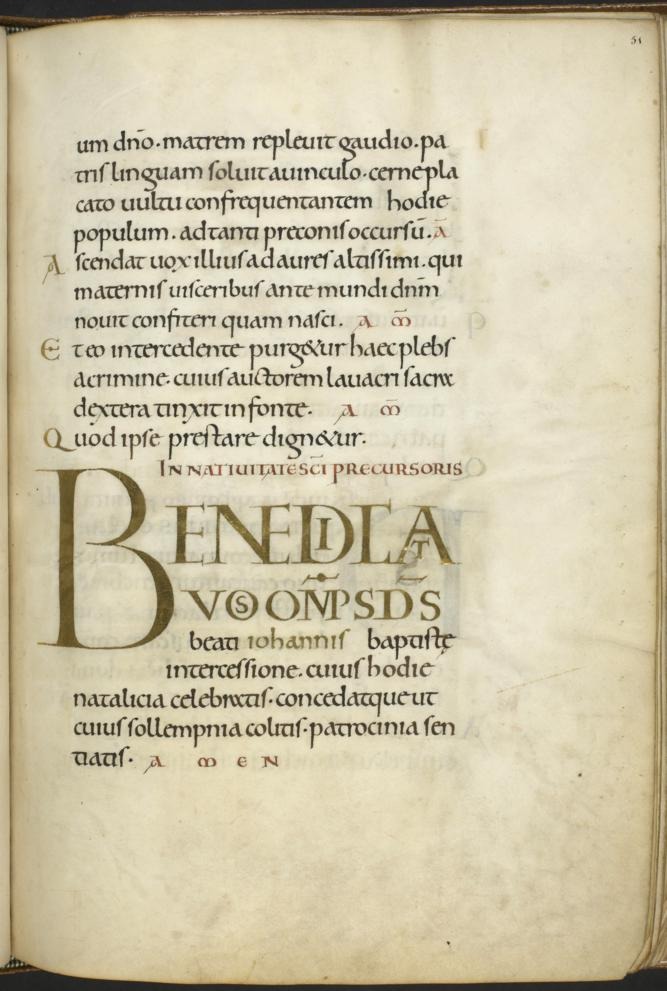 51
um dño· matrem repleuit gaudio· pa
tris linguam soluit a uinculo· cerne pla
cato uultu confrequentantem hodie
populum· ad tanti preconis occursū· Ā
Ascendat uox illius ad aures altissimi· qui
maternis uisceribus ante mundi dnm̄
nouit confiteri quam nasci. A m̄
Et eo intercedente purg&ur haec plebs
a crimine· cuius auctorem lauacri sacra
dextera tinxit in fonte· A m̄
Quod ipse prestare dign&ur.
IN NATIUITATE SCI PRECURSORIS
BENEDICAT
VOS OM̄PS D̄S
beati iohannis baptistę
intercessione· cuius hodie
natalicia celebratis· concedatque ut
cuius sollempnia colitis· patrocinia sen
tiatis· A M E N